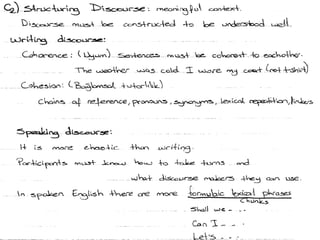 C2) Structuring Discourse: meaningful context.
Discourse must be constructed to be understood well.
Writing discourse:
Coherence: (Uyum) Sentences must be coherent to eachother.
The weather was cold I wore my coat (not t-shirt)
Cohesion: (Bağlamsal tutarlılık)
Chains of reference, pronouns, synonyms, lexical repetition, linkers
Speaking discourse:
It is more chaotic than writing.
Participants must know how to take turns and
what discourse makers they can use.
In spoken English there are more formulaic lexical phrases
chunks
Shall we - - .
Can I - - .
Let's - - .